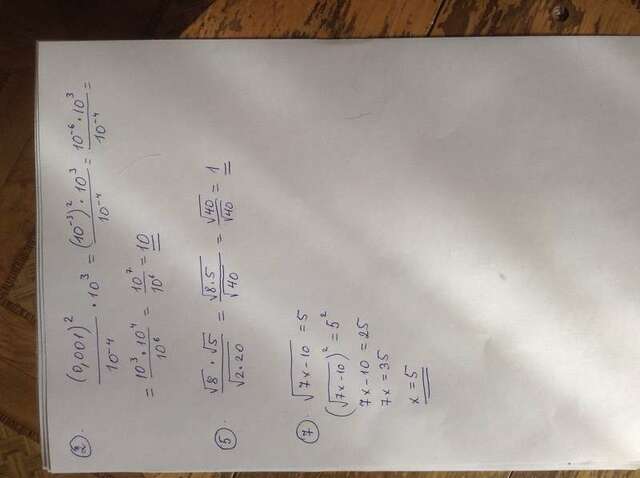 ② (0,001)² / 10⁻⁴ · 10³ = (10⁻³)² · 10³ / 10⁻⁴ = 10⁻⁶ · 10³ / 10⁻⁴ =
= 10³ · 10⁴ / 10⁶ = 10⁷ / 10⁶ = 10
⑤ √8 · √5 / √2·20 = √8·5 / √40 = √40 / √40 = 1
⑦ √7x-10 = 5
(√7x-10)² = 5²
7x-10 = 25
7x = 35
x = 5